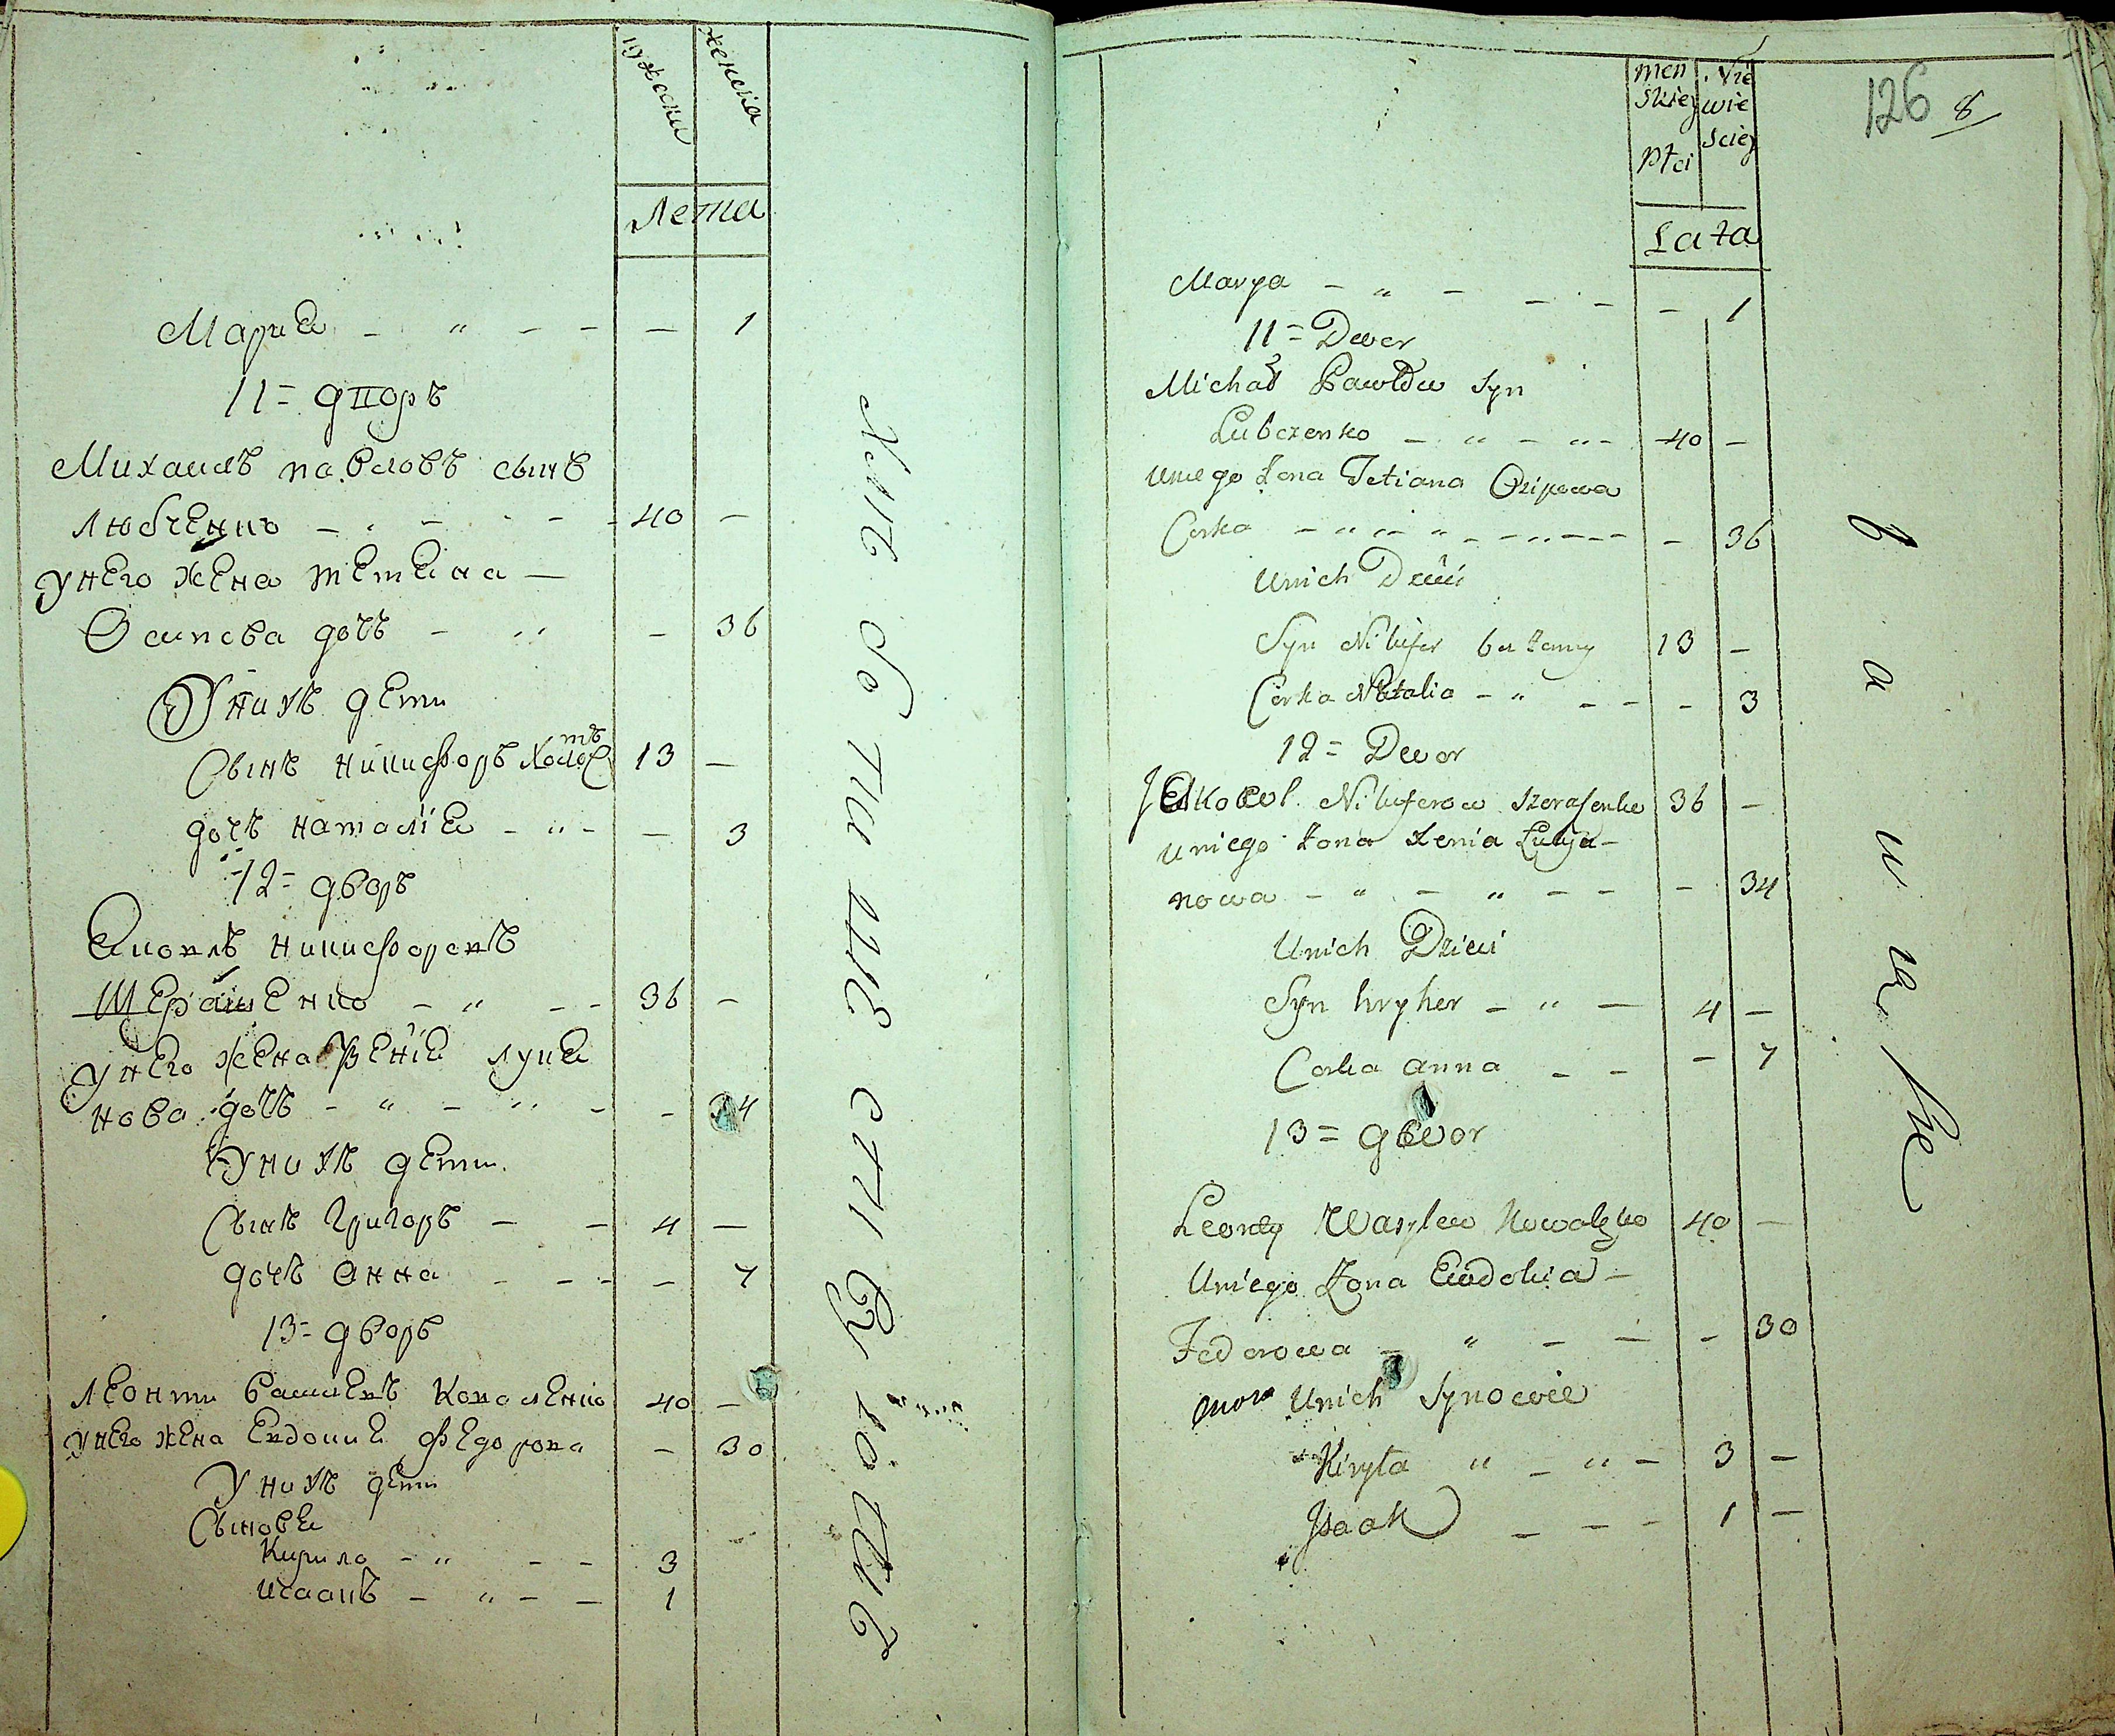 мужески женска
Лета
Мариа - " - - - 1
11 = дворъ
Михаилъ павловъ сынъ
Любченко - - - 40 -
унего жена тетиана -
Осипова дочъ - " - 36
Унихъ дети
Сынъ никифоръ холостъ 13 -
дочъ наталиа - " - - 3
12 = дворъ
Яковъ никифоровъ
Шерашенко - " - - 36 -
унего жена Ксениа лукя
нова дочъ - " - " - - 34
Унихъ дети
Сынъ григоръ - - 4 -
дочъ анна - - - - 7
13 = дворъ
Леонти василевъ Коваленко 40 -
унего жена Евдокиа федорова - 30
Унихъ дети
Сынове
Кирило - " - - 3
исаакъ - " - - 1
men skiey Płci Nie wie sciey
Lata
126 8
Marya - " - - - - 1
11 = Dwor
Michał Pawłow Syn
Lubczenko - " - " - 40 -
Uniego Żona Tetiana Ozipowa
Corka - " - " - - " - - - - 36
Unich Dzieci
Syn Nikifer 13 -
Corka Natalia - " - - - 3
12 = Dwor
Jakowl Nikiferow Szeraszenko 36 -
Uniego Żona Xenia Lukja-
nowa - " - " - - - 34
Unich Dzieci
Syn hryher - " - 4 -
Corka anna - - - 7
13 = dwor
Leonty Wasylew Kowalenko 40 -
Uniego Żona Ewdokia -
Fedorowa - " - - - 30
Unich Synowie
Kiryła " - " - 3 -
Isaak - - - 1 -